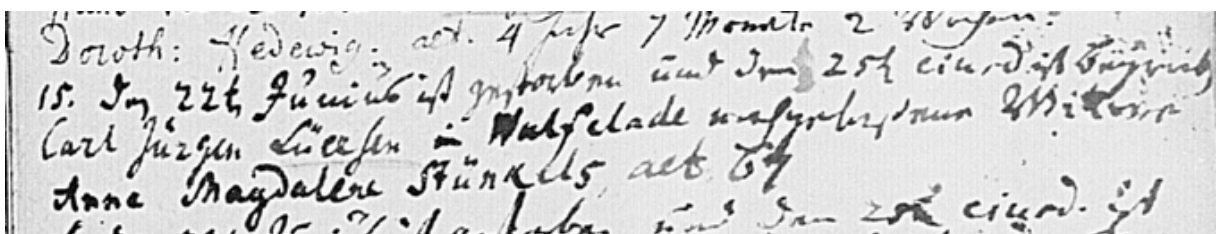 Doroth: Hedewig. aet. 4 Jahr 7 Monate 2 Wochen.
15. Den 22t Junius ist gestorben und den 25t eiusd ist begrab
Carl Jürgen Lüersen in Wulfelade nachgelassene Witwe
Anna Magdalena Stünkels, aet.
und den 25t eiusd. ist